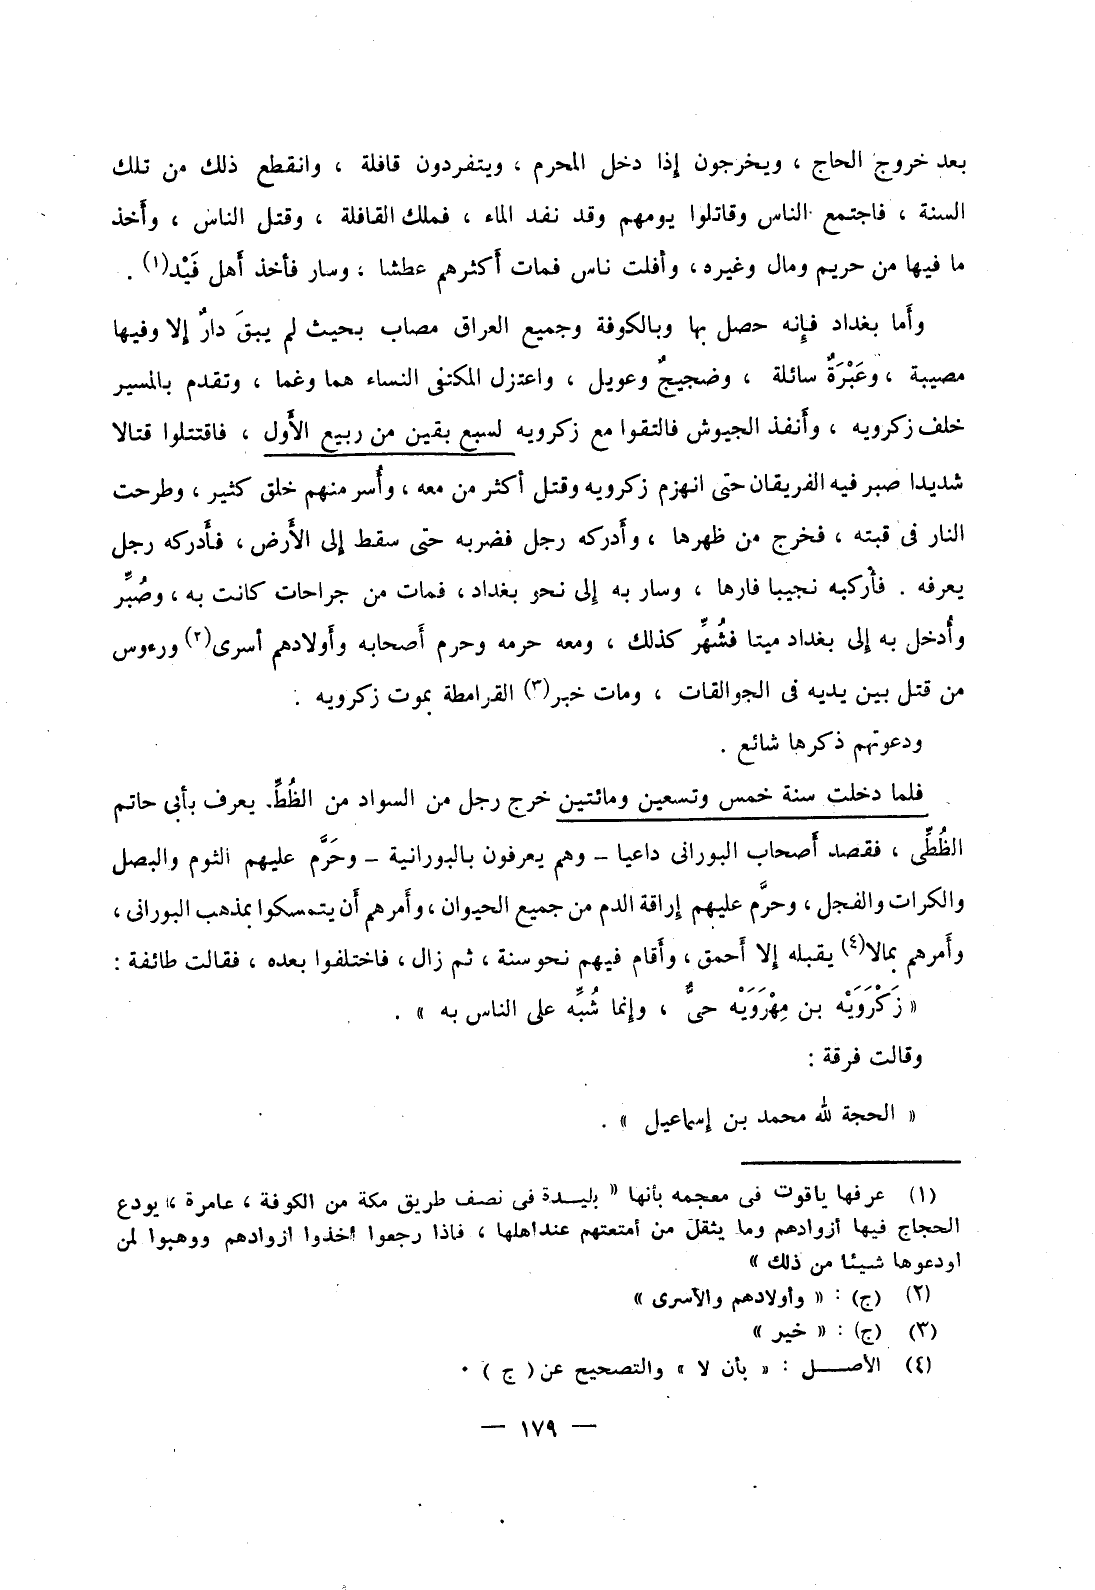 بعد خروج الحاج ، ويخرجون إذا دخل المحرم ، ويتفردون قافلة ، وانقطع ذلك من تلك
السنة ، فاجتمع الناس وقاتلوا يومهم وقد نفد الماء ، فملك القافلة ، وقتل الناس ، وأخذ
ما فيها من حريم ومال وغيره ، وأفلت ناس فمات أكثرهم عطشا ، وسار فأخذ أهل فَيْد(١) .
وأما بغداد فإنه حصل بها وبالكوفة وجميع العراق مصاب بحيث لم يبقَ دارٌ إلا وفيها
مصيبة ، وعَبْرَةٌ سائلة ، وضجيجٌ وعويل ، واعتزل المكتفى النساء هما وغما ، وتقدم بالمسير
خلف زكرويه ، وأنفذ الجيوش فالتقوا مع زكرويه لسبع بقين من ربيع الأول ، فاقتتلوا قتالا
شديدا صبر فيه الفريقان حتى انهزم زكرويه وقتل أكثر من معه ، وأُسر منهم خلق كثير ، وطرحت
النار فى قبته ، فخرج من ظهرها ، وأدركه رجل فضربه حتى سقط إلى الأرض ، فأدركه رجل
يعرفه . فأركبه نجيبا فارها ، وسار به إلى نحو بغداد ، فمات من جراحات كانت به ، وصُبِّر
وأُدخل به إلى بغداد ميتا فشُهِّر كذلك ، ومعه حرمه وحرم أصحابه وأولادهم أسرى(٢) ورءوس
من قتل بين يديه فى الجوالقات ، ومات خبر(٣) القرامطة بموت زكرويه .
ودعوتهم ذكرها شائع .
فلما دخلت سنة خمس وتسعين ومائتين خرج رجل من السواد من الظُطِّ. يعرف بأبى حاتم
الظُطِّى ، فقصد أصحاب البورانى داعيا – وهم يعرفون بالبورانية – وحَرَّم عليهم الثوم والبصل
والكرات والفجل ، وحرَّم عليهم إراقة الدم من جميع الحيوان ، وأمرهم أن يتمسكوا بمذهب البورانى ،
وأمرهم بمالا(٤) يقبله إلا أحمق ، وأقام فيهم نحو سنة ، ثم زال ، فاختلفوا بعده ، فقالت طائفة :
« زَكْرَوَيْه بن مِهْرَوَيْه حىٌّ ، وإنما شُبِّه على الناس به » .
وقالت فرقة :
« الحجة لله محمد بن إسماعيل » .
(١) عرفها ياقوت فى معجمه بأنها « بليدة فى نصف طريق مكة من الكوفة ، عامرة ، يودع
الحجاج فيها أزوادهم وما يثقل من أمتعتهم عند اهلها ، فاذا رجعوا أخذوا ازوادهم ووهبوا لمن
اودعوها شيئا من ذلك »
(٢) (ج) : « وأولادهم والأسرى »
(٣) (ج) : « خير »
(٤) الأصل : « بأن لا » والتصحيح عن ( ج ) .
— ١٧٩ —